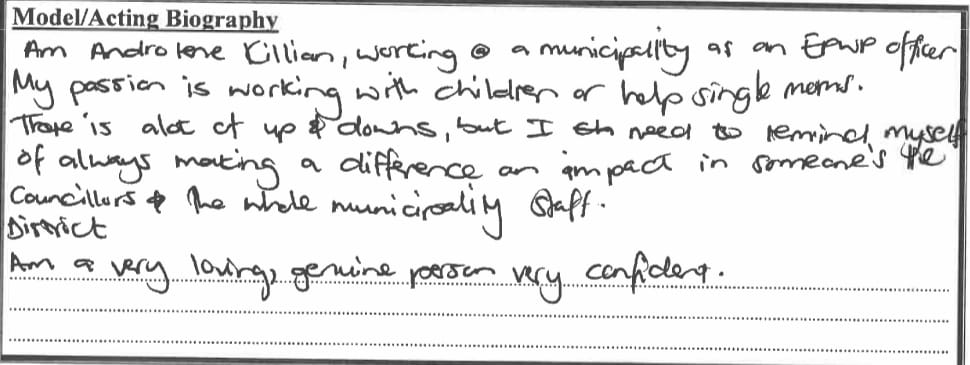 Model/Acting Biography
Am Androlene Killian, working @ a municipality as an EPWP officer
My passion is working with children or help single moms.
There is alot of up & downs, but I need to remind myself
of always making a difference an impact in someone's life
Councillors & the whole municipality Staff.
District
Am a very loving, genuine person very confident.